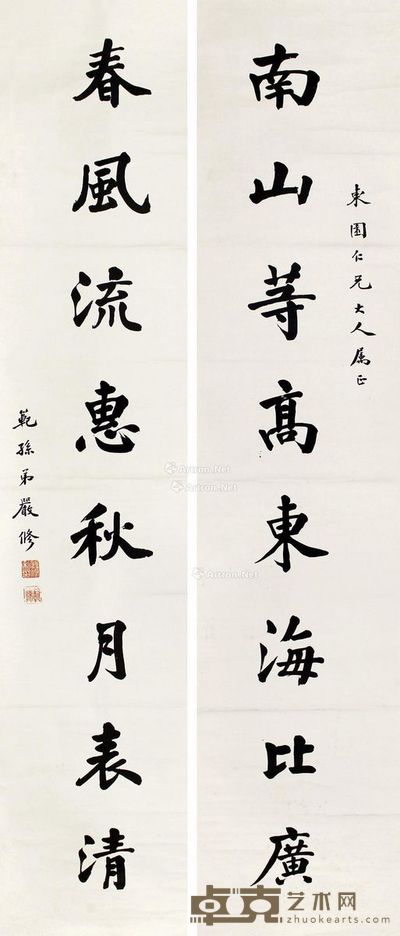 東園仁兄大人属正
南山等高東海比廣
春風流惠秋月表清
範孫弟嚴修
Artron.Net
Artron.Net
Artron.Net
卓克艺术网
zhuokearts.com